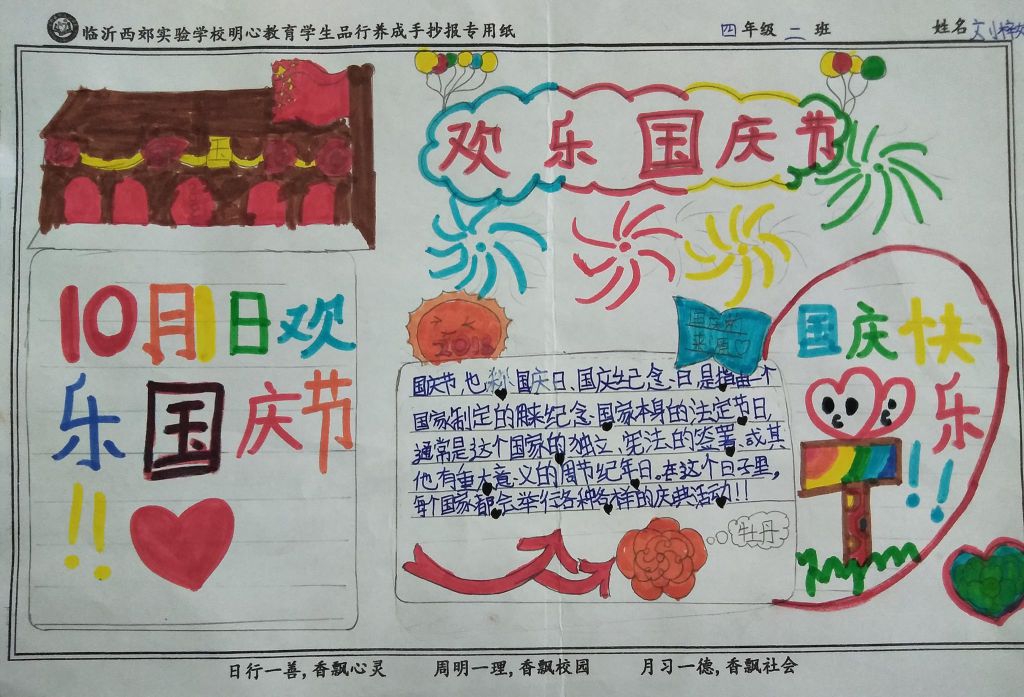 临沂西郊实验学校明心教育学生品行养成手抄报专用纸
四年级 二 班 姓名
欢乐国庆节
10月1日欢
乐国庆节
!!
2018
国庆节也 国庆日、国庆纪念日,是指由一个
国家制定的用来纪念国家本身的法定节日,
通常是这个国家的独立、宪法的签署、或其
他有重大意义的周节纪年日,在这个日子里,
每个国家都会举行各种各样的庆典活动!!
牡丹
国庆快
乐
!!
日行一善,香飘心灵 周明一理,香飘校园 月习一德,香飘社会